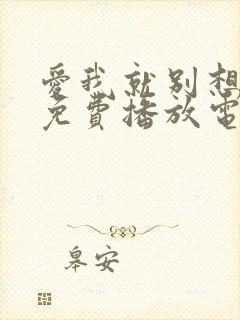 愛我就别想
免費播放電
皋安